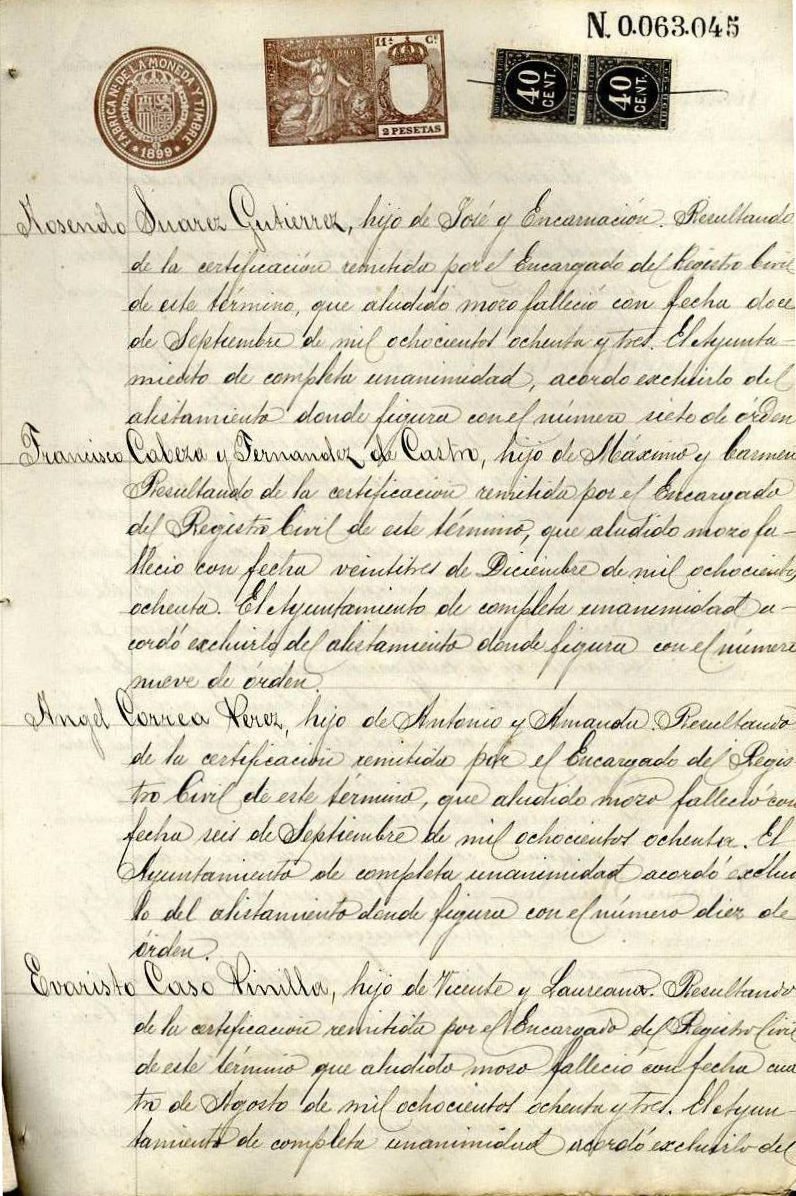 N. 0.063.045
FABRICA Nal DE LA MONEDA Y TIMBRE
* 1899 *
11ª Cl
2 PESETAS
40 CENT.
40 CENT.
Rosendo Suarez Gutierrez, hijo de José y Encarnación. Resultando
de la certificación remitida por el Encargado del Registro Civil
de este término, que aludido mozo falleció con fecha doce
de Septiembre de mil ochocientos ochenta y tres. El Ayunta-
miento de completa unanimidad, acordó excluirlo del
alistamiento donde figura con el número siete de órden
Francisco Cabeza y Fernandez de Castro, hijo de Máximo y Carmen
Resultando de la certificación remitida por el Encargado
del Registro Civil de este término, que aludido mozo fa-
lleció con fecha veintitres de Diciembre de mil ochocientos
ochenta. El Ayuntamiento de completa unanimidad a-
cordó excluirlo del alistamiento donde figura con el número
nueve de órden.
Angel Correa Perez, hijo de Antonio y Amanda. Resultando
de la certificación remitida por el Encargado del Regis-
tro Civil de este término, que aludido mozo falleció con
fecha seis de Septiembre de mil ochocientos ochenta. El
Ayuntamiento de completa unanimidad acordó exclui
lo del alistamiento donde figura con el número diez de
órden.
Evaristo Caso Pinilla, hijo de Vicente y Laureana. Resultando
de la certificación remitida por el Encargado del Registro Civil
de este término que aludido mozo falleció con fecha cua
tro de Agosto de mil ochocientos ochenta y tres. El Ayun-
tamiento de completa unanimidad acordó excluirlo del